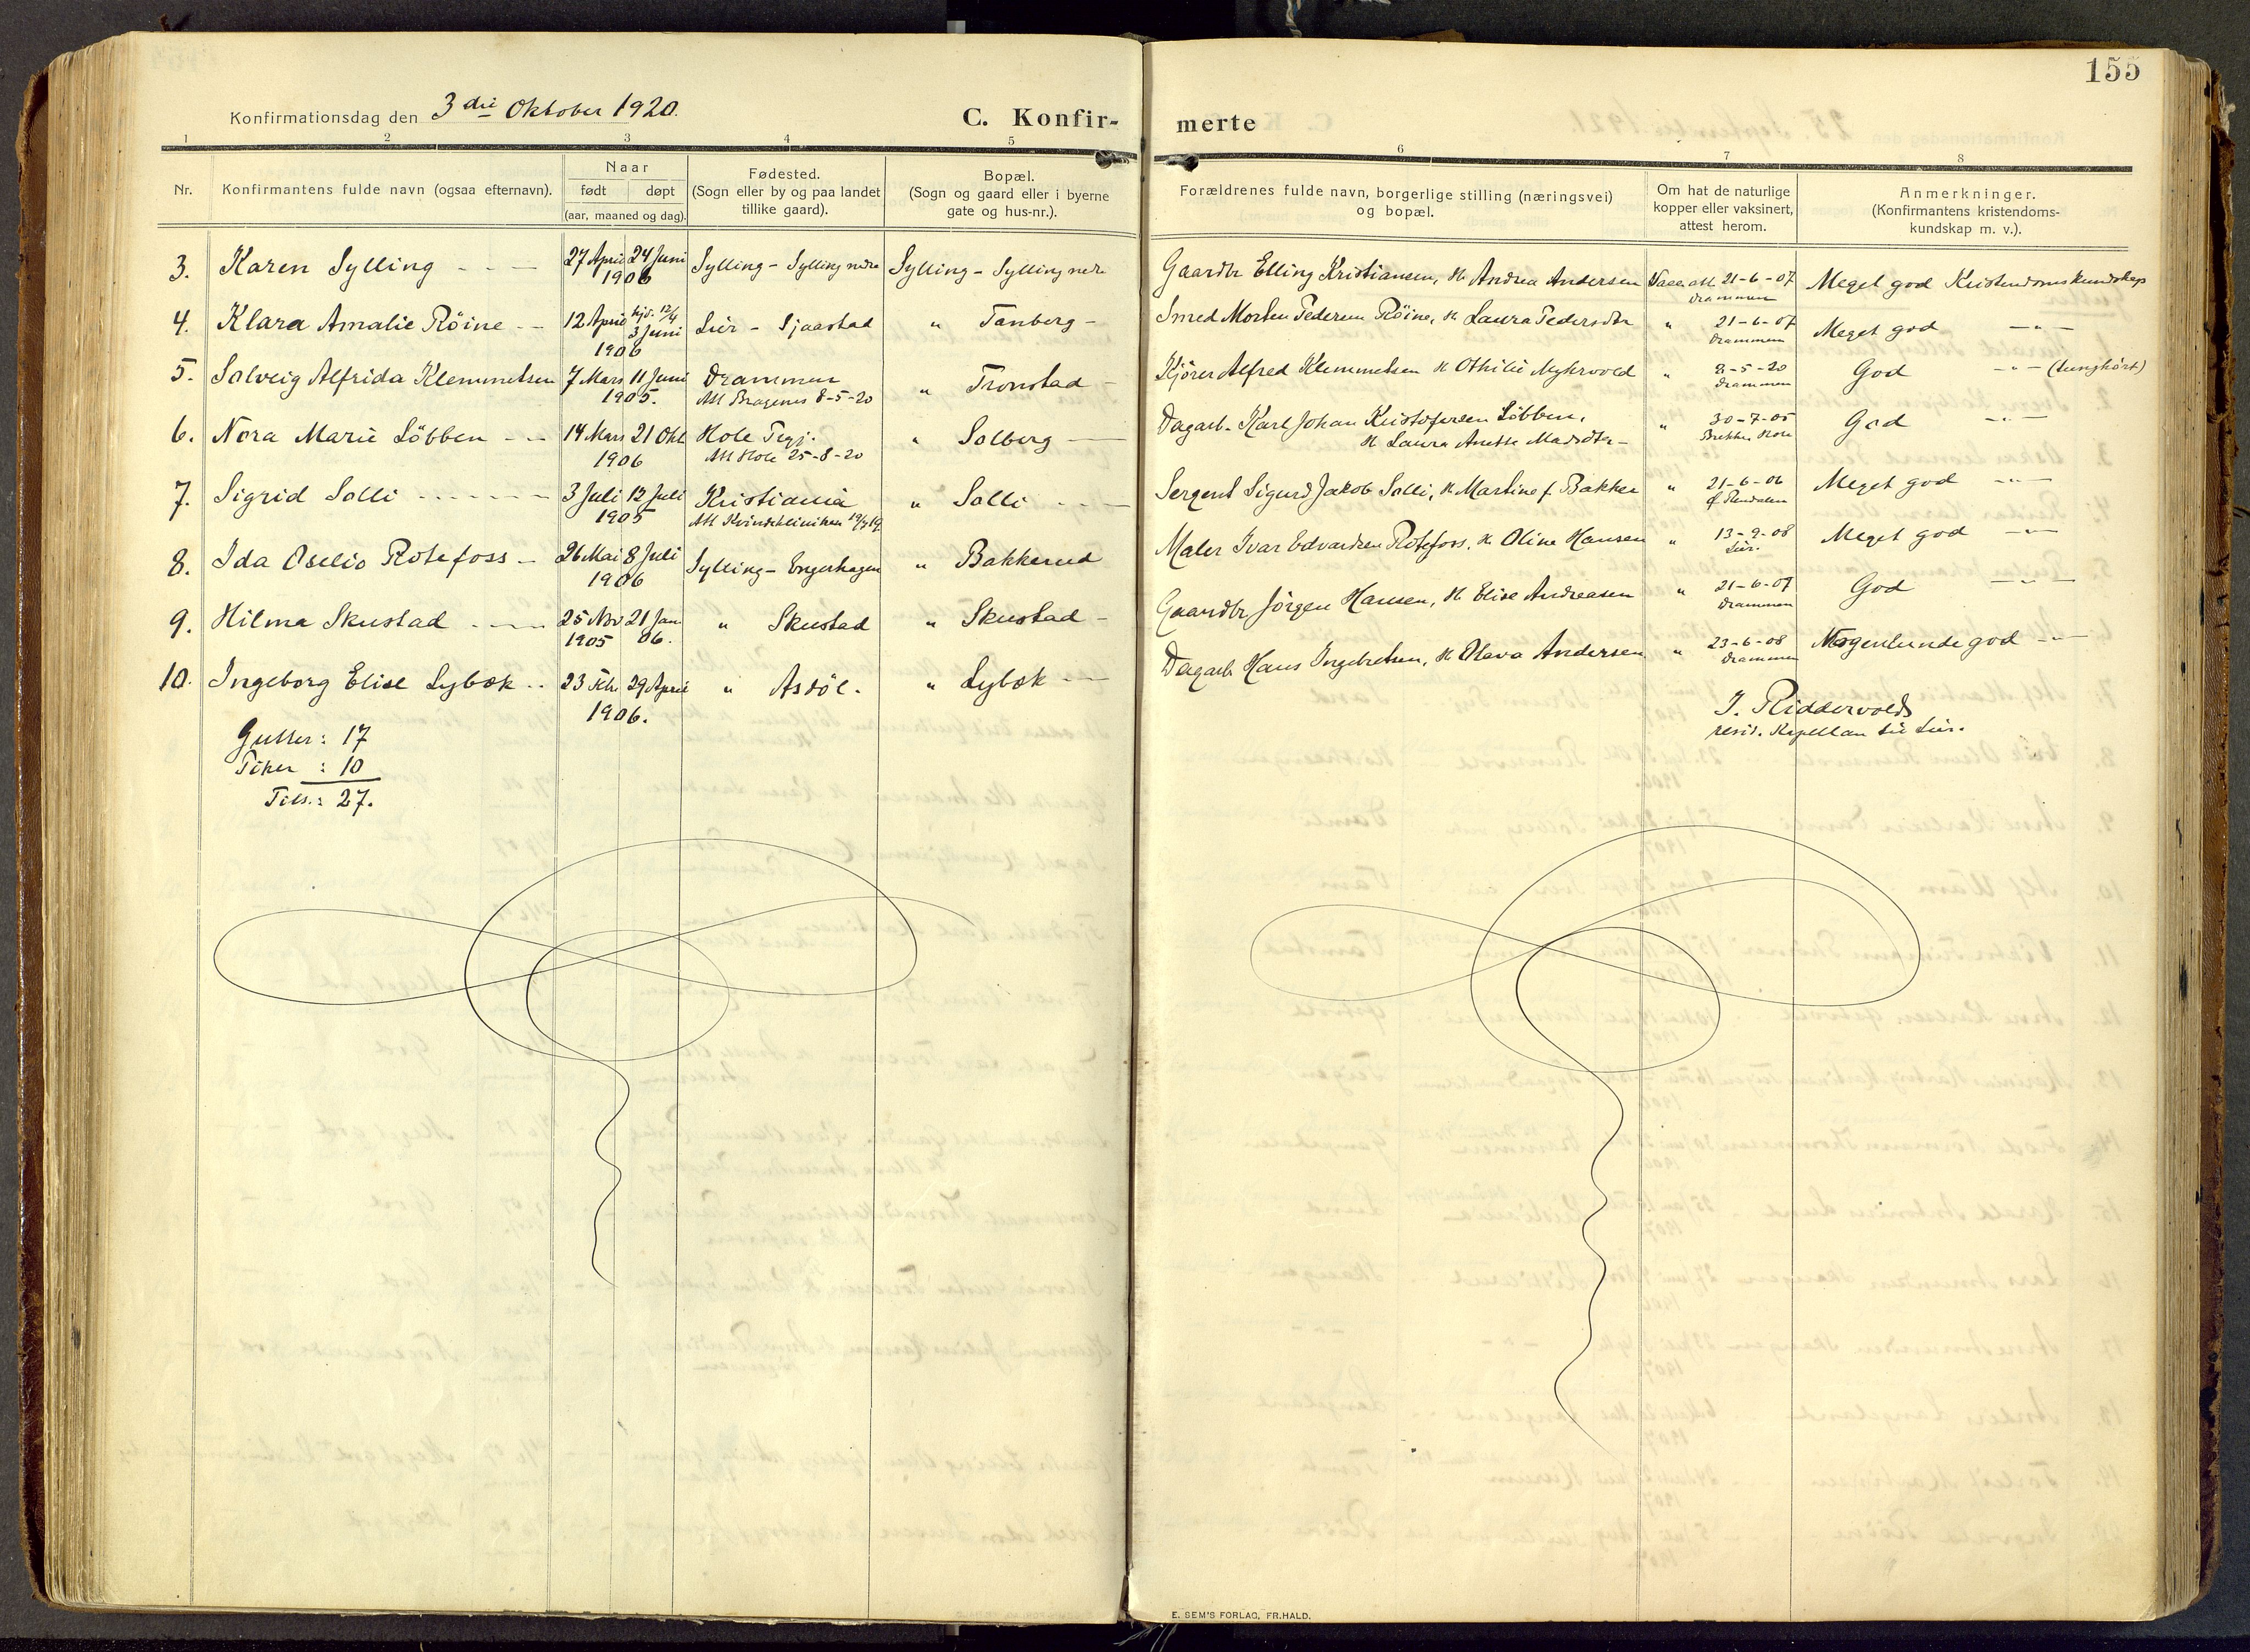 155
Konfirmationsdag den 3die Oktober 1920.
C. Konfir-
merte
1 2 3 4 5 6 7 8
Nr.
Konfirmantens fulde navn (ogsaa efternavn).
Naar
født døpt
(aar, maaned og dag).
Fødested.
(Sogn eller by og paa landet
tillike gaard).
Bopæl.
(Sogn og gaard eller i byerne
gate og hus-nr.).
Forældrenes fulde navn, borgerlige stilling (næringsvei)
og bopæl.
Om hat de naturlige
kopper eller vaksinert,
attest herom.
Anmerkninger.
(Konfirmantens kristendoms-
kundskap m. v.).
3. Karen Sylling 27 April 24 Juni Sylling - Sylling nedre Sylling - Sylling nedre Gaardbr Elling Kristiansen, H. Andrea Andersen Vacc. att 21-6-07 Meget god Kristendomskundskap
1906 Drammen
4. Klara Amalie Röine 12 April hjd. 12/4 Lier - Sjaastad " Tanberg Smed Morten Pedersen Röine, H. Laura Pedersdtr " 21-6-07 Meget god - " -
3 Juni Drammen
1906
5. Solveig Alfrida Klemmetsen 7 Mars 11 Juni Drammen " Tronstad Kjörer Alfred Klemmetsen H. Othilie Myhrvold " 8-5-20 God - " - (tunghört)
1905. Att Bragenes 8-5-20 Drammen
6. Nora Marie Löbben 14 Mars 21 Okt Hole " Solberg Dagarb. Karl Johan Kristofersen Löbben, " 30-7-05 God - " -
1906 Att Hole 25-8-20 H. Laura Anette Madsdtr Hole
7. Sigrid Solli 3 Juli 12 Juli Kristiania " Solli Sergent Sigurd Jakob Solli, H. Martine f. Bakken " 21-6-06 Meget god - " -
1905 Att Kvindeklinikken Rendalen
8. Ida Oselio Rotefoss 26 Mai 8 Juli Sylling - Engerhagen " Bakkerud Maler Ivar Edvardsen Rotefoss, H. Oline Hansen " 13-9-08 Meget god - " -
1906 Lier.
9. Hilma Skustad 25 Nov 21 Jan " Skustad " Skustad Gaardbr Jörgen Hansen, H. Elise Andreasen " 21-6-07 God - " -
1905 06. Drammen
10. Ingeborg Elise Lybæk 23 Febr. 29 April " Asdöl. " Lybæk Dagarb. Hans Ingebretsen, H. Olava Andersen " 23-6-08 Nogenlunde god - " -
1906. Drammen
Gutter: 17
Piker : 10
Tils.: 27.
J. Riddervolds
resid. Kapellan til Lier.
E. SEM'S FORLAG, FR.HALD.